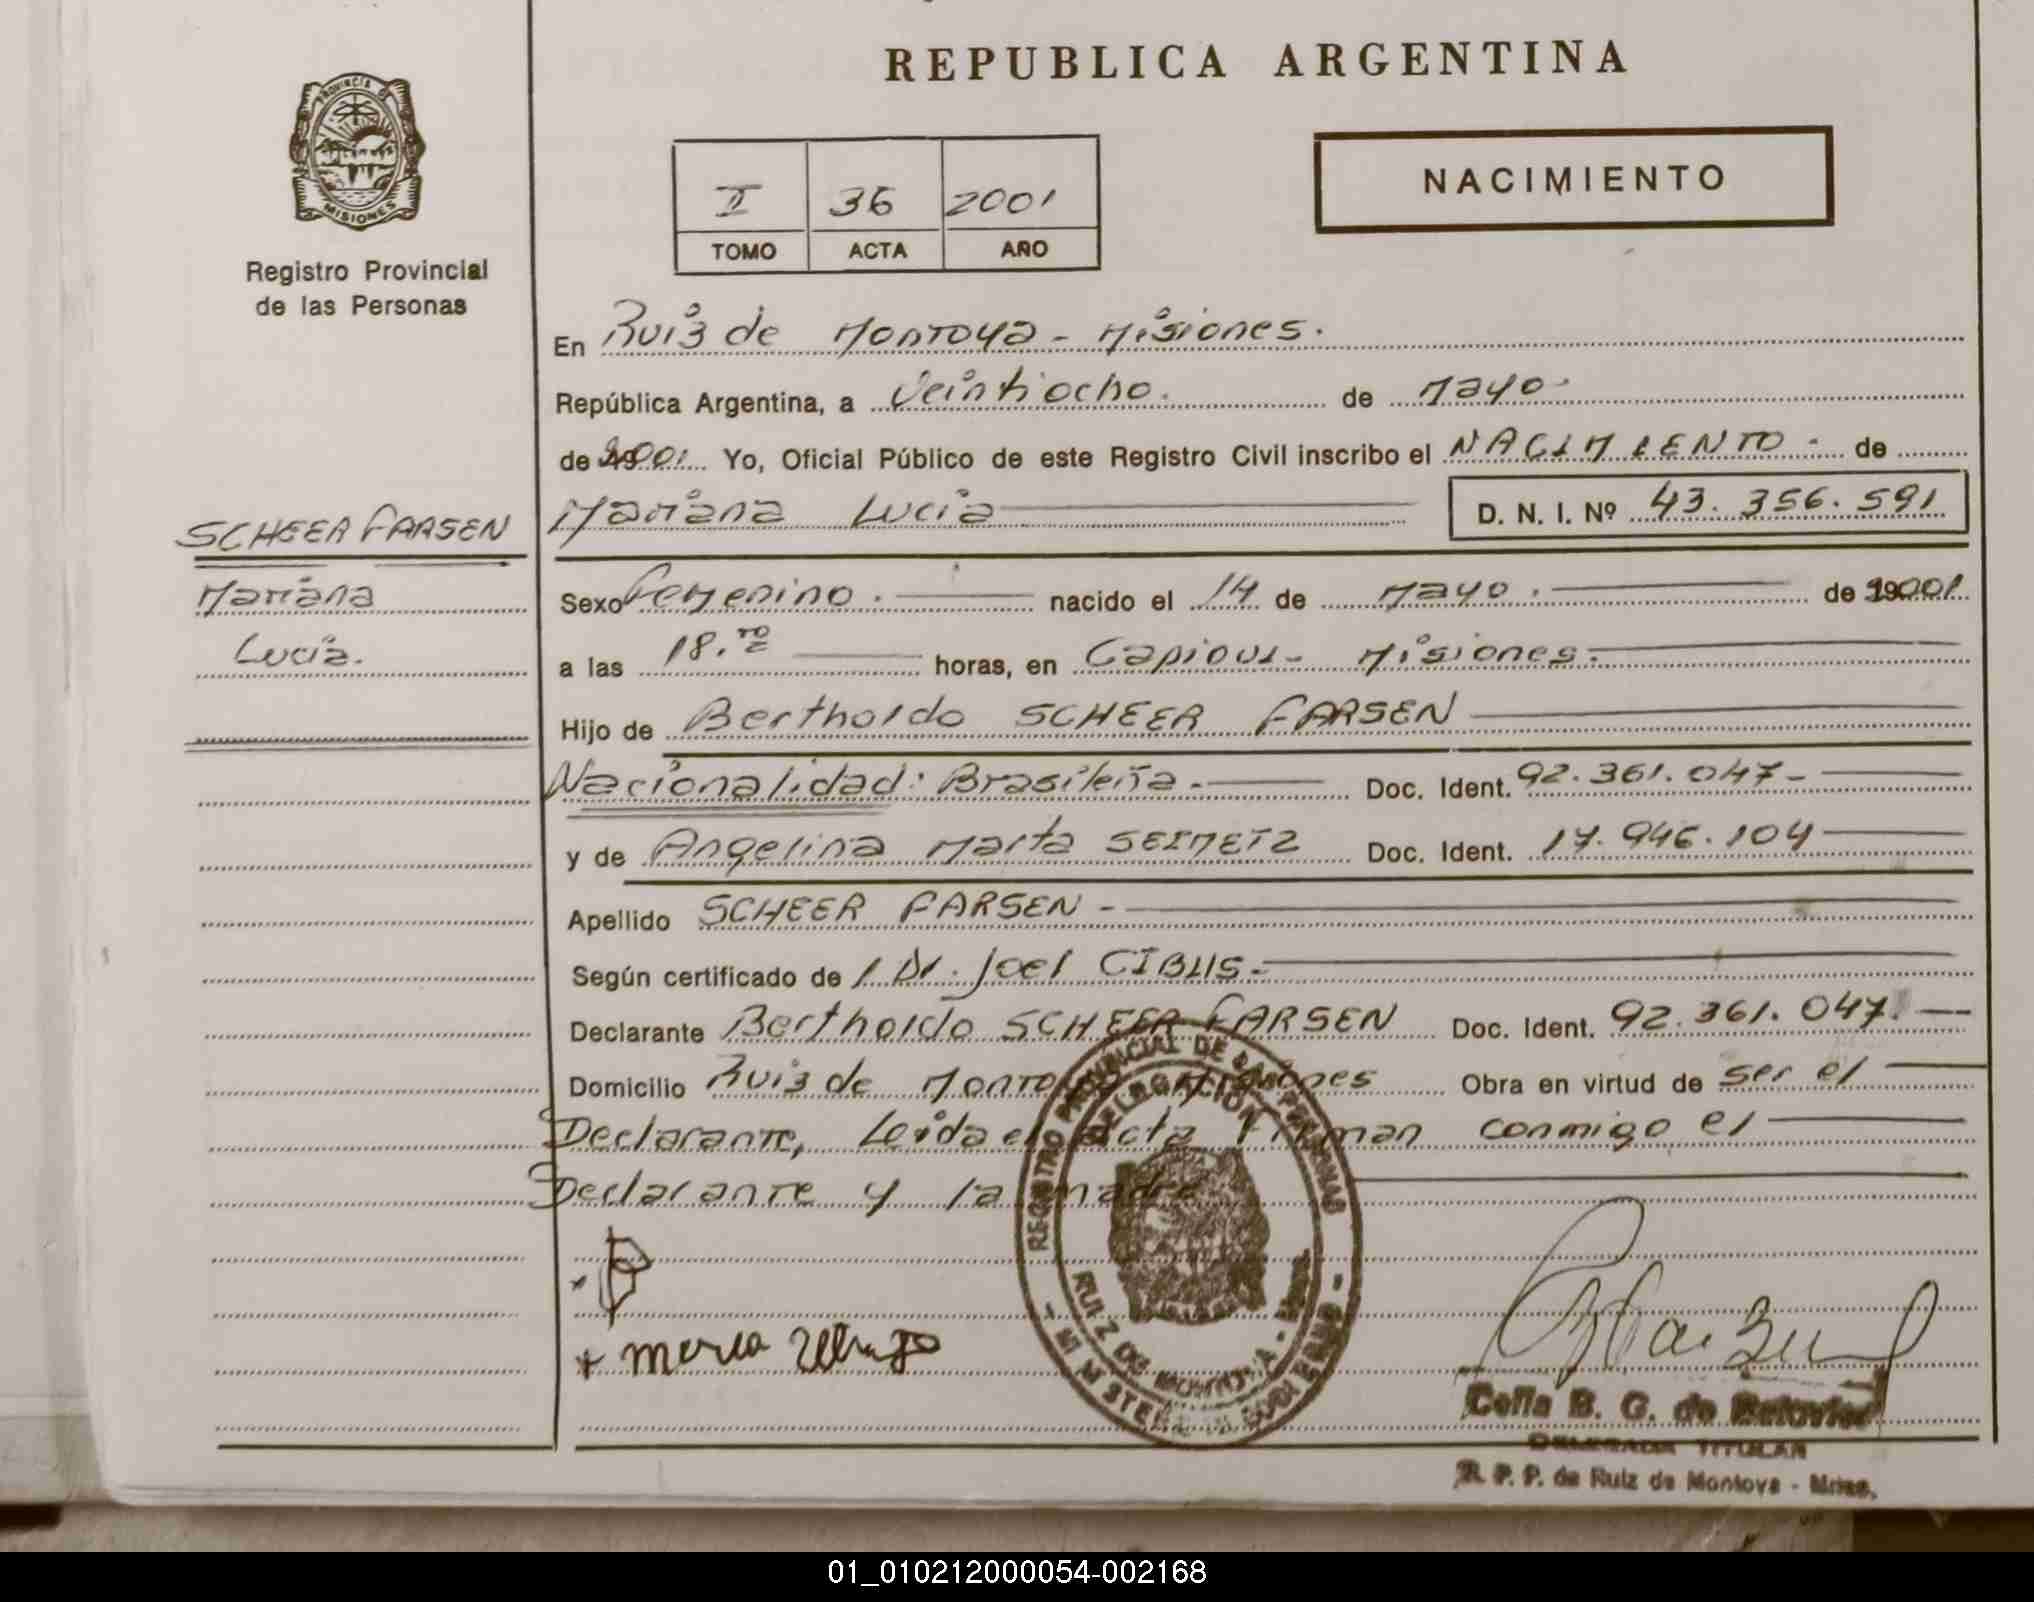 REPUBLICA ARGENTINA
PROVINCIA DE
MISIONES
Registro Provincial
de las Personas
II 36 2001
TOMO ACTA AÑO
NACIMIENTO
En Ruiz de Montoya - Misiones.
República Argentina, a Veintiocho. de Mayo.
de 2001. Yo, Oficial Público de este Registro Civil inscribo el NACIMIENTO. de
Mariana Lucia D. N. I. Nº 43.356.591
SCHEER FARSEN
Mariana
Lucia.
Sexo Femenino. nacido el 14 de Mayo. de 2001.
a las 18. horas, en Capioví - Misiones.
Hijo de Bertholdo SCHEER FARSEN
Nacionalidad: Brasileña. Doc. Ident. 92.361.047-
y de Angelina Marta SEIMETZ Doc. Ident. 17.946.104
Apellido SCHEER FARSEN -
Según certificado de Dr. Joel CIBLIS.
Declarante Bertholdo SCHEER FARSEN Doc. Ident. 92.361.047.
Domicilio Ruiz de Montoya Misiones Obra en virtud de ser el
Declarante, Leida el Acta Firman conmigo el
Declarante y la madre
REGISTRO PROVINCIAL DE LAS PERSONAS
DELEGACION
RUIZ DE MONTOYA - Mnes.
- MINISTERIO DE GOBIERNO -
Celia B. G. de
DELEGADA TITULAR
R. P. P. de Ruiz de Montoya - Mnes.
01_010212000054-002168